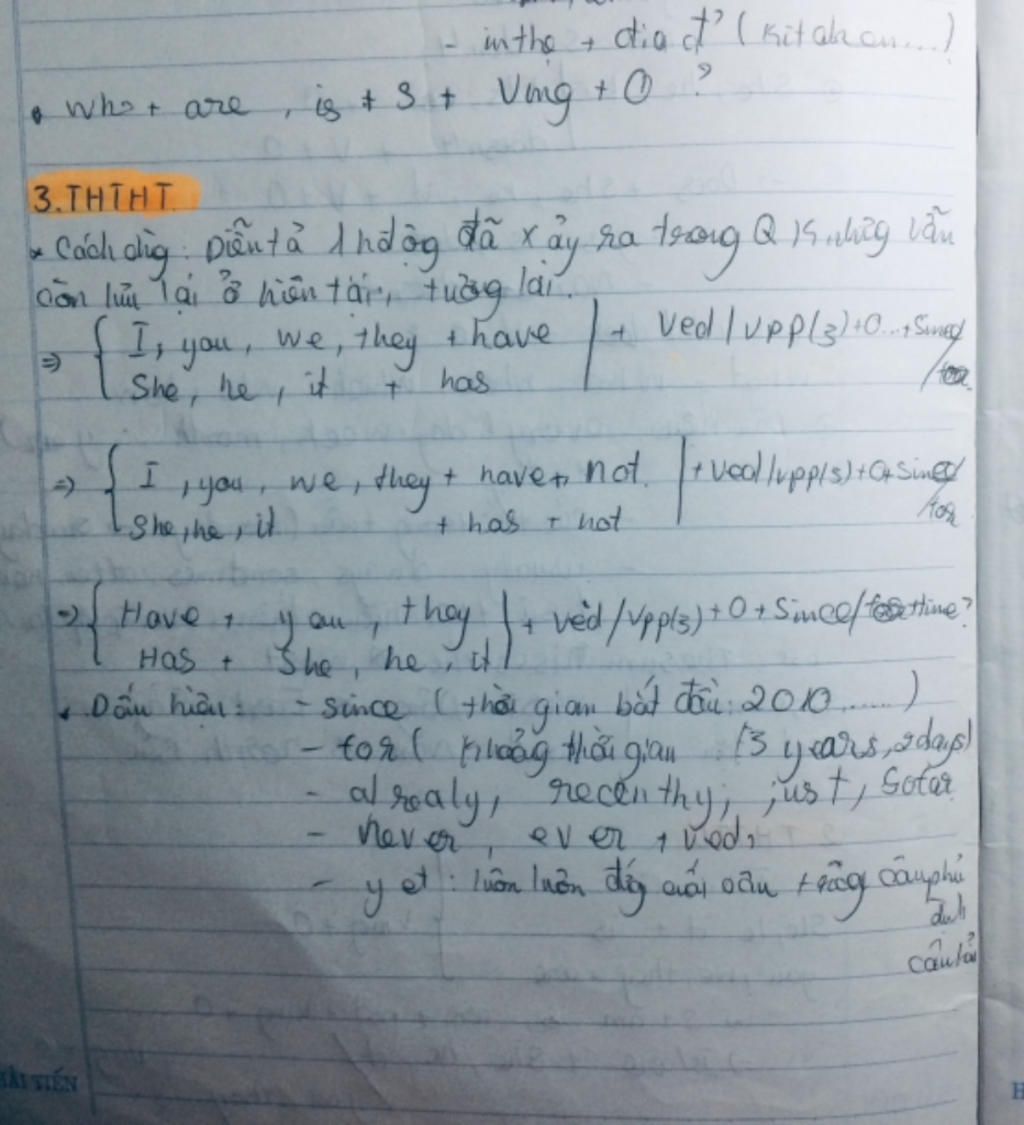 - in the + địa đ' (kitchen...)
• Wh + are, is + S + Ving + O ?
3.THTHT.
* Cách dùg: Diễn tả 1 hđộg đã xảy ra trong QK nhưg vẫn
còn lưu lại ở hiện tại, tươg lai.
=> { I, you, we, they + have | + Ved / Vpp(3) + O ... + Since/
She, he, it + has / for
=> { I, you, we, they + have + not. | + Ved / Vpp(3) + O + Since/
She, he, it + has + not / for
=> { Have + you, they } + Ved / Vpp(3) + O + Since/ for + time?
Has + She, he, it
. Dấu hiệu: - since ( thời gian bắt đầu: 2010 ...... )
- for ( khoảg thời gian (3 years, 2 days)
- alrealy, recenthy, just, Sofar
- never, ever + Ved,
- yet: luôn luôn đứg cuối câu trong câu phủ
định
HẢI TIẾN
H